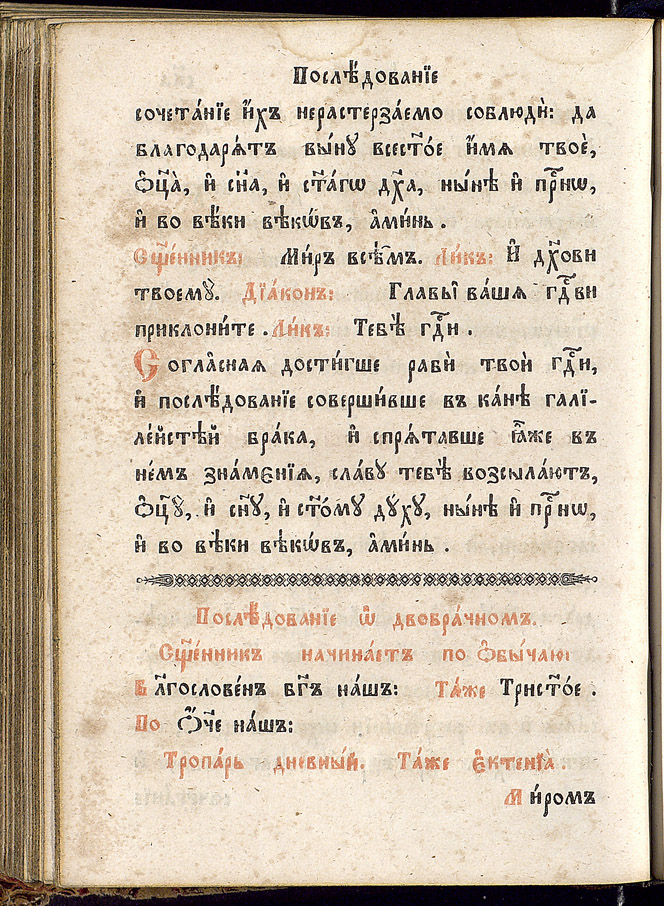 Послѣ́дованїе
сочета́нїе и҆́хъ нерастерза́емо соблюдѝ: да
благодарѧ́тъ вы́нꙋ всест҃о́е и҆́мѧ твоѐ,
ѻ҆ц҃а̀, и҆ сн҃а, и҆ ст҃а́гѡ дх҃а, ны́нѣ и҆ прⷭ҇нѡ,
и҆ во вѣ́ки вѣкѡ́въ, а҆ми́нь.
Сщ҃е́нникъ: Ми́ръ всѣ̑мъ. Ли́къ: И҆ дх҃ови
твоемꙋ̀. Дїа́конъ: Главы̑ ва́шѧ гдⷭ҇ви
приклони́те. Ли́къ: Тебѣ̀ гдⷭ҇и.
Согла́снаѧ дости́гше рабѝ твоѝ гдⷭ҇и,
и҆ послѣ́дованїе соверши́вше въ ка́нѣ галї-
ле́йстѣй бра́ка, и҆ спрѧ́тавше ꙗ҆́же въ
не́мъ зна́мєнїѧ, сла́вꙋ тебѣ̀ возсыла́ютъ,
ѻ҆ц҃ꙋ̀, и҆ сн҃ꙋ, и҆ ст҃о́мꙋ дꙋ́хꙋ, ны́нѣ и҆ прⷭ҇нѡ,
и҆ во вѣ́ки вѣкѡ́въ, а҆ми́нь.
Послѣ́дованїе ѡ҆ двобра́чномъ.
Сщ҃е́нникъ начина́етъ по ѻ҆бы́чаю:
Бл҃гослове́нъ бг҃ъ на́шъ: Та́же Трист҃о́е.
По Ѻ҆́ч҃е на́шъ:
Тропа́рь дневны́й. Та́же є҆ктенїа̀.
Ми́ромъ